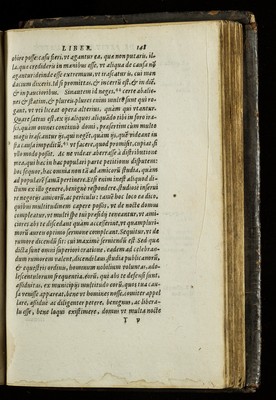 LIBER. 148
uĕire posse: casu fieri, ut agantur ea, quæ non putaris, il-
la, quæ credideris in manibus esse, ut aliqua de causa nõ
agantur: deinde esse extremum, ut irascatur is, cui men
dacium dixeris. id si promittas, & incertũ est, & in diẽ,
& in paucioribus. Sin autem id neges, & certe abalie-
nes & statim, & plures. plures enim multo sunt qui ro-
gant, ut uti liceat opera alterius, quàm qui utantur.
Quare satius est ex ijs aliquos aliquãdo tibi in foro ira-
sci, quàm omnes continuò domi, præsertim cùm multo
magis irascantur ijs, qui negẽt, quàm ijs, quẽ uideant ex
ipa causa impeditũ, ut facere, quod promisit, cupiat, si
ullo modo possit. Ac ne uidear aberrasse à distributione
mea, qui hac in hac populari parte petitionis disputem:
hoc sequor, hæc omnia non tã ad amicorũ studia, quàm
ad popularẽ famã pertinere. Etsi enim inest aliquid di-
ctum ex illo genere, benignè respondere, studiosè inserui
re negotijs amicorũ, ac periculis: tamẽ hoc loco ea dico,
quibus multitudinem capere possis, ut de nocte domus
compleatur, ut multi spe tui præsidij teneantur, ut ami-
ciores abs te discedant quàm accesserint, ut quamplurí-
morũ aures optimo sermone compleant. Sequitur, ut de
rumore dicendũ sit: cui maximè seruiendũ est Sed quæ
dicta sunt omni superiori oratione, eadem ad celebran-
dum rumorem ualent, dicendi laus, studia publicanorũ,
& equestris ordinis, hominum nobilium voluntas, ado-
lescentulorum frequentia, eorũ, qui abs te defensi sunt,
assiduitas, ex municipijs multitudo eorũ, quos tua cau-
sa uenisse appareat, bene ut homines nosse, comiter appel
lare, assiduè ac diligenter petere, benignus, ac libera-
lis esse, bene loqui existiment, domus ut multa nocte
T v